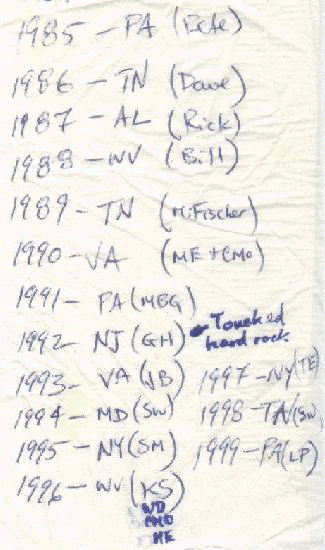 1985 - PA (Pete)
1986 - TN (Dave)
1987 - AL (Rick)
1988 - WV (Bill)
1989 - TN (M.Fischer)
1990 - VA (ME + CMO)
1991 - PA (MEG)
1992 - NJ (GH) Touched
hard rock
1993 - VA (JB)
1994 - MD (SW)
1995 - NY (SM)
1996 - WV (KS)
MD
ME
1997 - NY (TE)
1998 - TN (SW)
1999 - PA (LP)